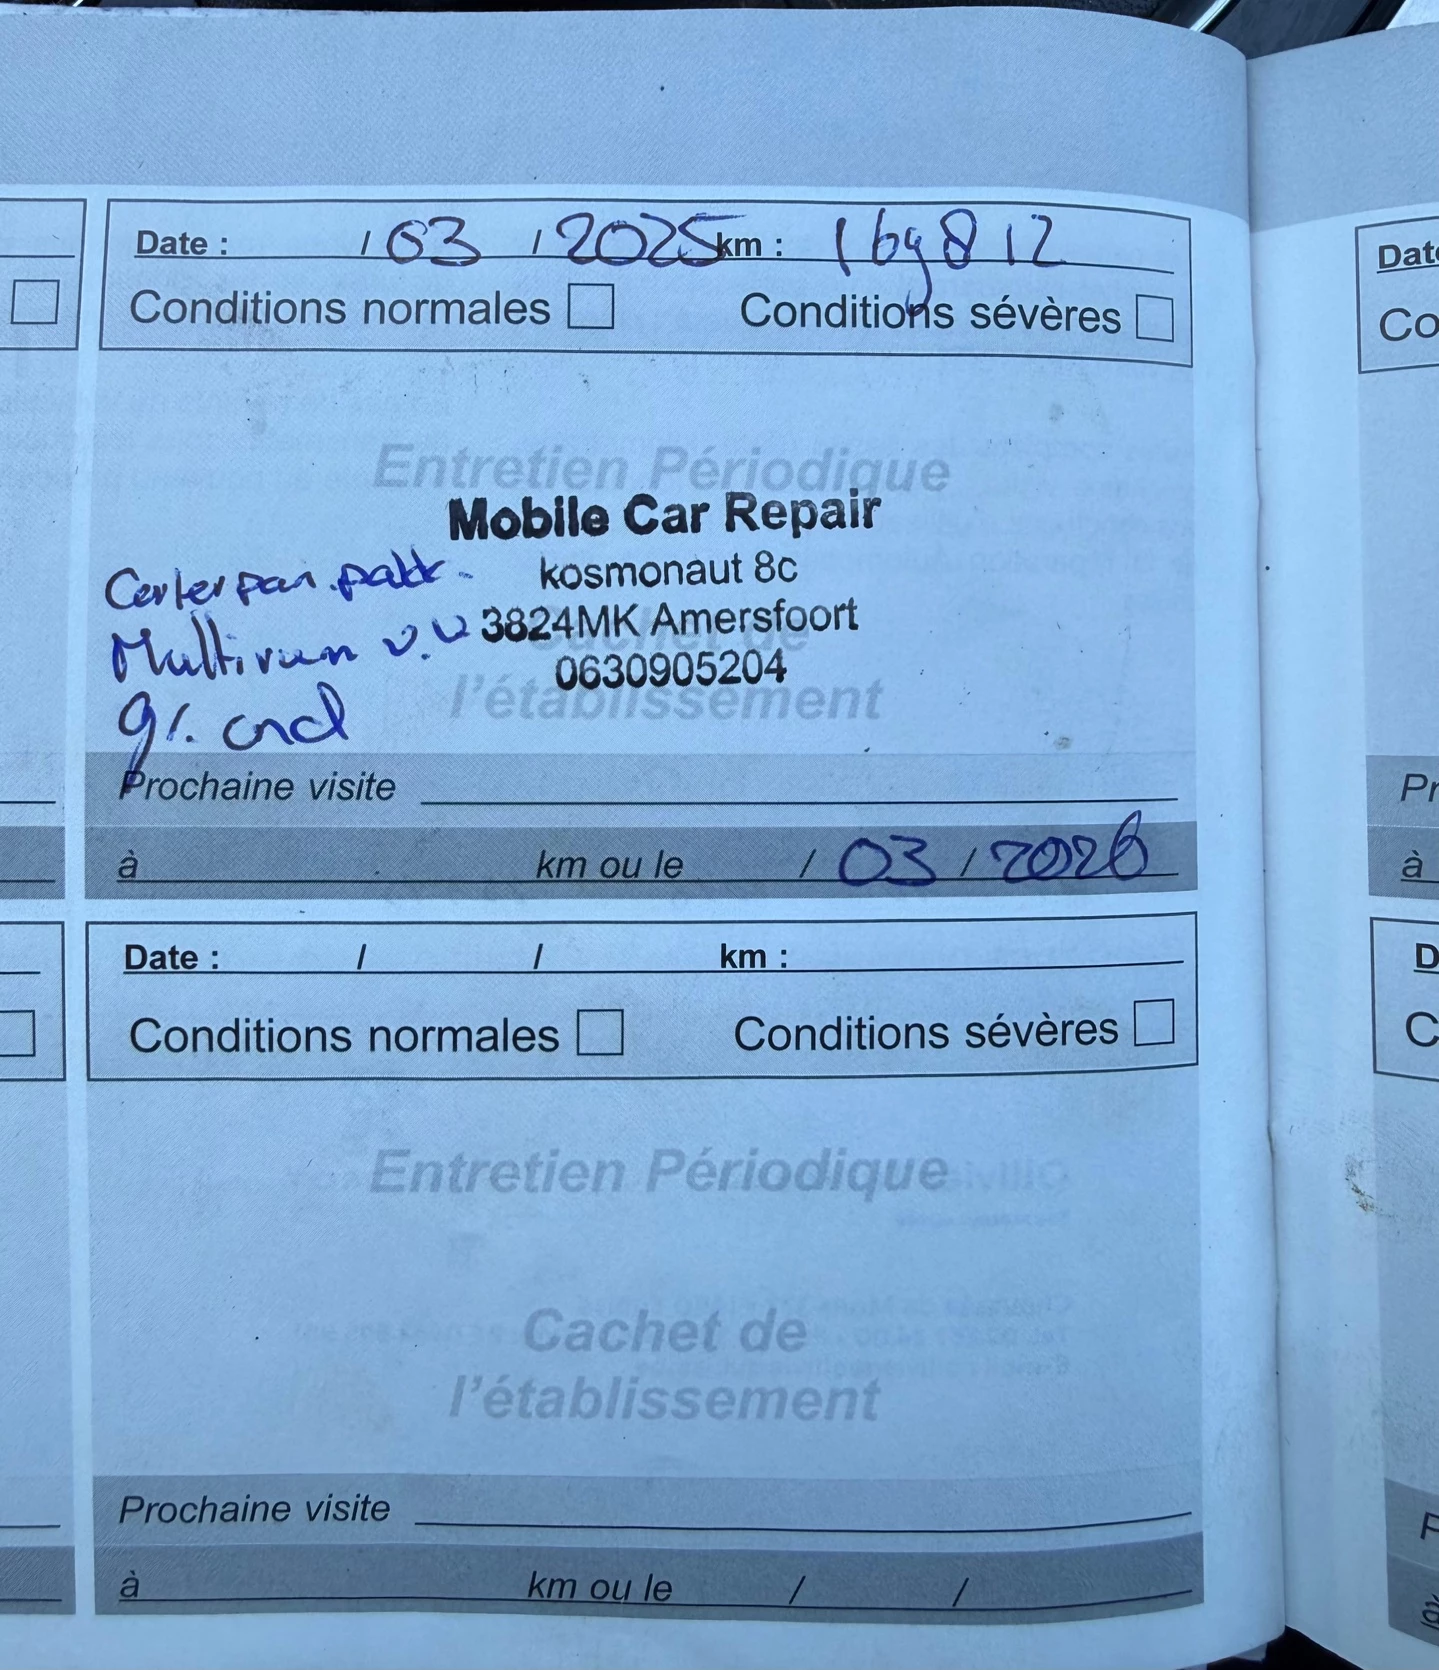 Date : / 03 / 2025 km : 169812
Conditions normales Conditions sévères
Entretien Périodique
Mobile Car Repair
kosmonaut 8c
Carterpan. pakk.
3824MK Amersfoort
Multirium v.v
0630905204
Cachet de
l'établissement
Prochaine visite
à km ou le / 03 / 2026
Date : / / km :
Conditions normales Conditions sévères
Entretien Périodique
Cachet de
l'établissement
Prochaine visite
à km ou le / /
Date
Co
Pr
à
D
C
P
à